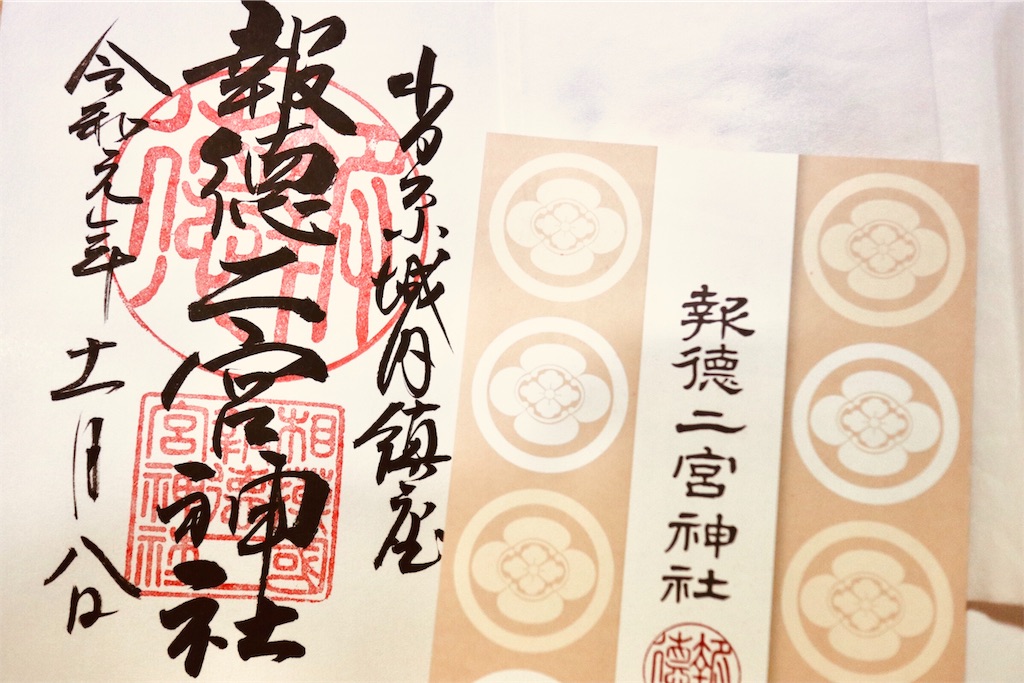 小田原城内鎮座
報徳二宮神社
令和元年
十一月八日
相模國
報徳二
宮神社
報徳二宮神社
報徳